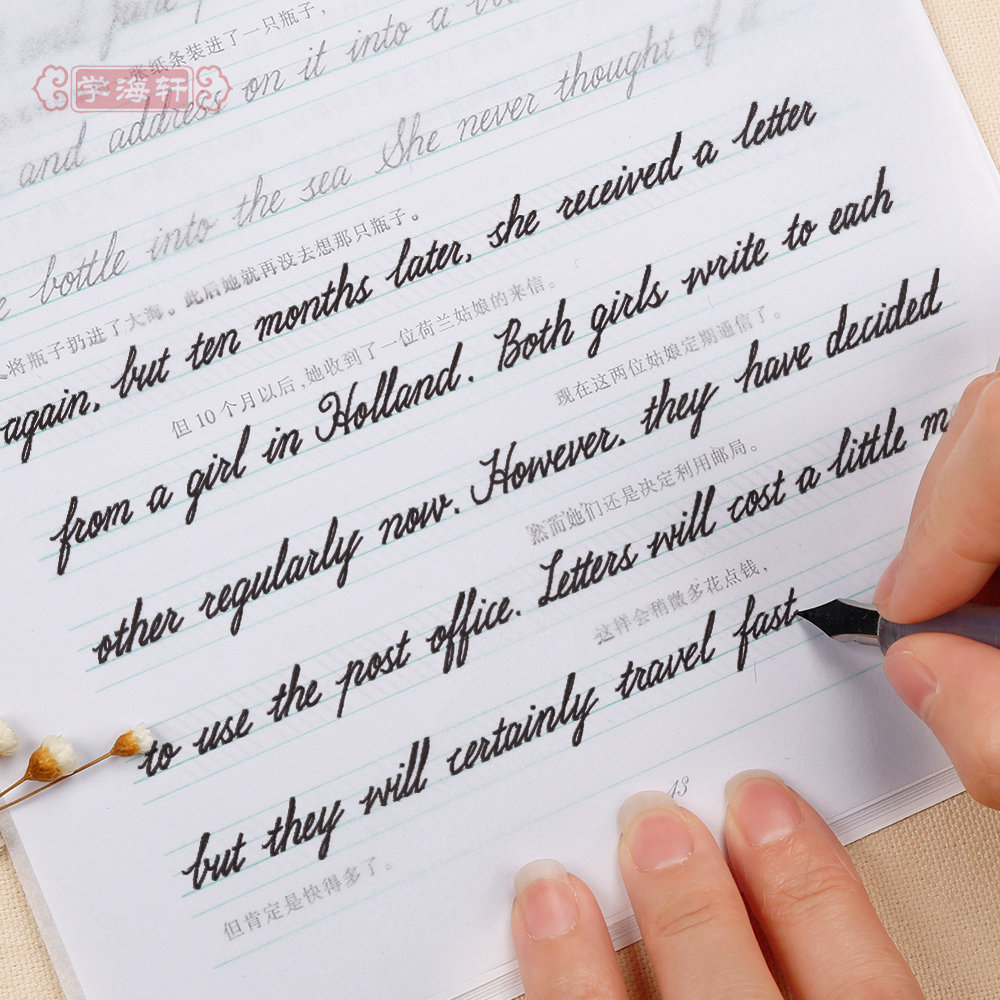 张纸条装进了一只瓶子,
学海轩
and address on it into a
bottle into the sea She never thought of
将瓶子扔进了大海。此后她就再没去想那只瓶子。
again, but ten months later, she received a letter
但10个月以后,她收到了一位荷兰姑娘的来信。
from a girl in Holland. Both girls write to each
现在这两位姑娘定期通信了。
other regularly now. However, they have decided
然而她们还是决定利用邮局。
to use the post office. Letters will cost a little
这样会稍微多花点钱,
but they will certainly travel fast
但肯定是快得多了。
13